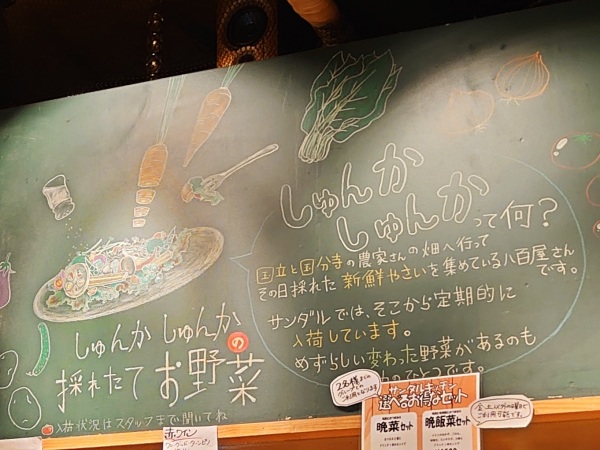 しゅんか しゅんかの
採れたて お野菜
入荷状況はスタッフまで聞いてね
しゅんか
しゅんかって何?
国立と国分寺の農家さんの畑へ行って
その日採れた新鮮やさいを集めている八百屋さん
です。
サンダルでは、そこから定期的に
入荷しています。
めずらしい変わった野菜があるのも
のひとつです。
サンダルキッチン
選べるお得なセット
晩菜セット
晩飯菜セット
赤ワイン